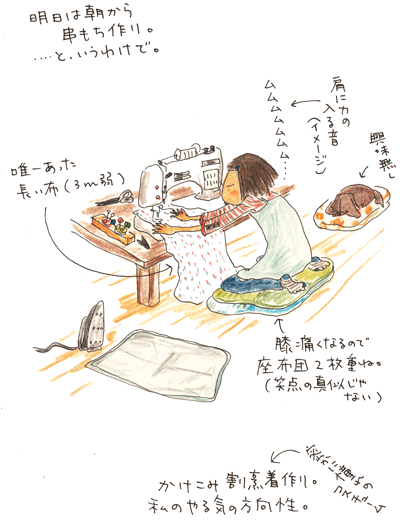 明日は朝から
串もち作り。
‥‥と、いうわけで。
ムムムムムムム…
肩に力の
入る音
(イメージ)
興味無し
唯一あった
長い布(3m弱)
膝痛くなるので
座布団2枚重ね。
(笑点の真似じゃ
ない)
かけこみ割烹着作り。
私のやる気の方向性。